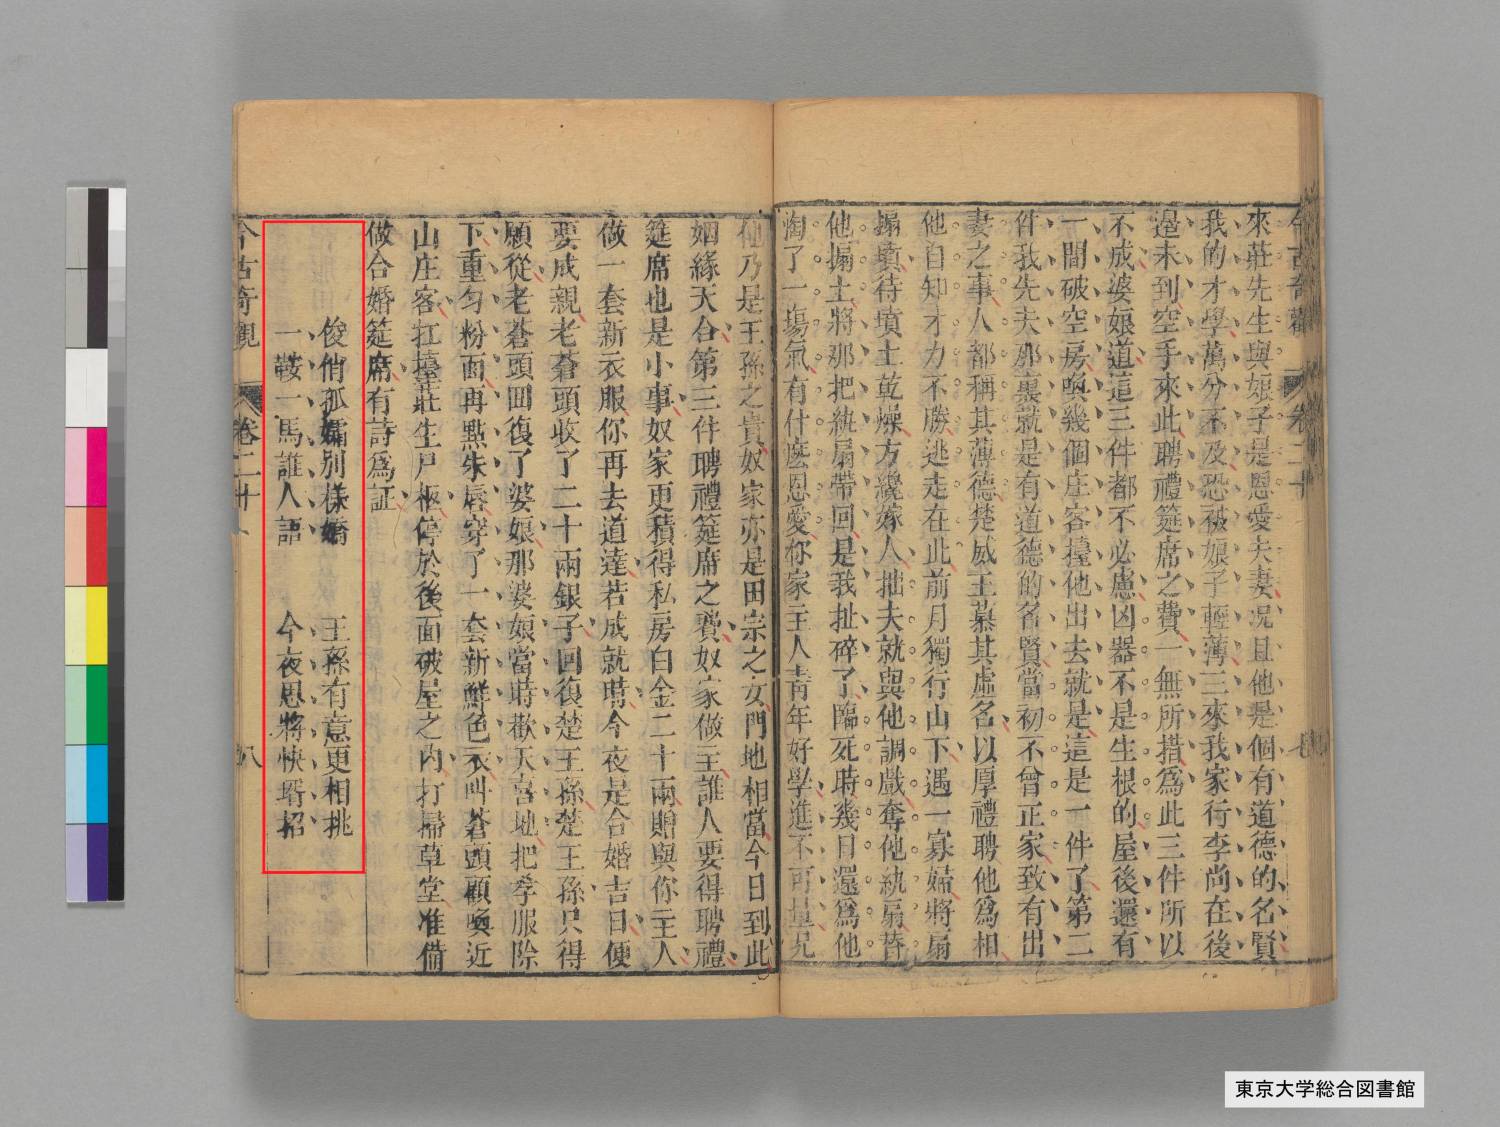 來莊先生與娘子是恩愛夫妻况且他是個有道德的名賢
我的才學萬分不及恐被娘子輕薄三來我家行李尚在後
邊未到空手來此聘禮筵席之費一無所措爲此三件所以
不成婆娘道這三件都不必慮凶器不是生根的屋後還有
一間破空房喚幾個庄客擡他出去就是這是一件了第二
件我先夫那裏就是有道德的名賢當初不曾正家致有出
妻之事人都稱其薄德楚威王慕其虛名以厚禮聘他爲相
他自知才力不勝逃走在此前月獨行山下遇一寡婦將扇
搧墳待墳土乾燥方纔嫁人拙夫就與他調戲奪他紈扇替
他搧土將那把紈扇帶回是我扯碎了臨死時幾日還爲他
淘了一塲氣有什麽恩愛你家主人青年好學進不可量况
他乃是王孫之貴奴家亦是田宗之女門地相當今日到此
姻緣天合第三件聘禮筵席之費奴家做主誰人要得聘禮
筵席也是小事奴家更積得私房白金二十兩贈與你主人
做一套新衣服你再去道達若成就時今夜是合婚吉日便
要成親老蒼頭收了二十兩銀子回復楚王孫楚王孫只得
願從老蒼頭回復了婆娘那婆娘當時歡天喜地把孝服除
下重勻粉面再點朱唇穿了一套新鮮色衣叫蒼頭顧喚近
山庄客扛擡莊生尸柩停於後面破屋之內打掃草堂准備
做合婚筵席有詩爲証
俊俏孤孀別樣嬌 王孫有意更相挑
一鞍一馬誰人語 今夜思將快壻招
今古奇觀 卷二十 八
東京大学総合図書館